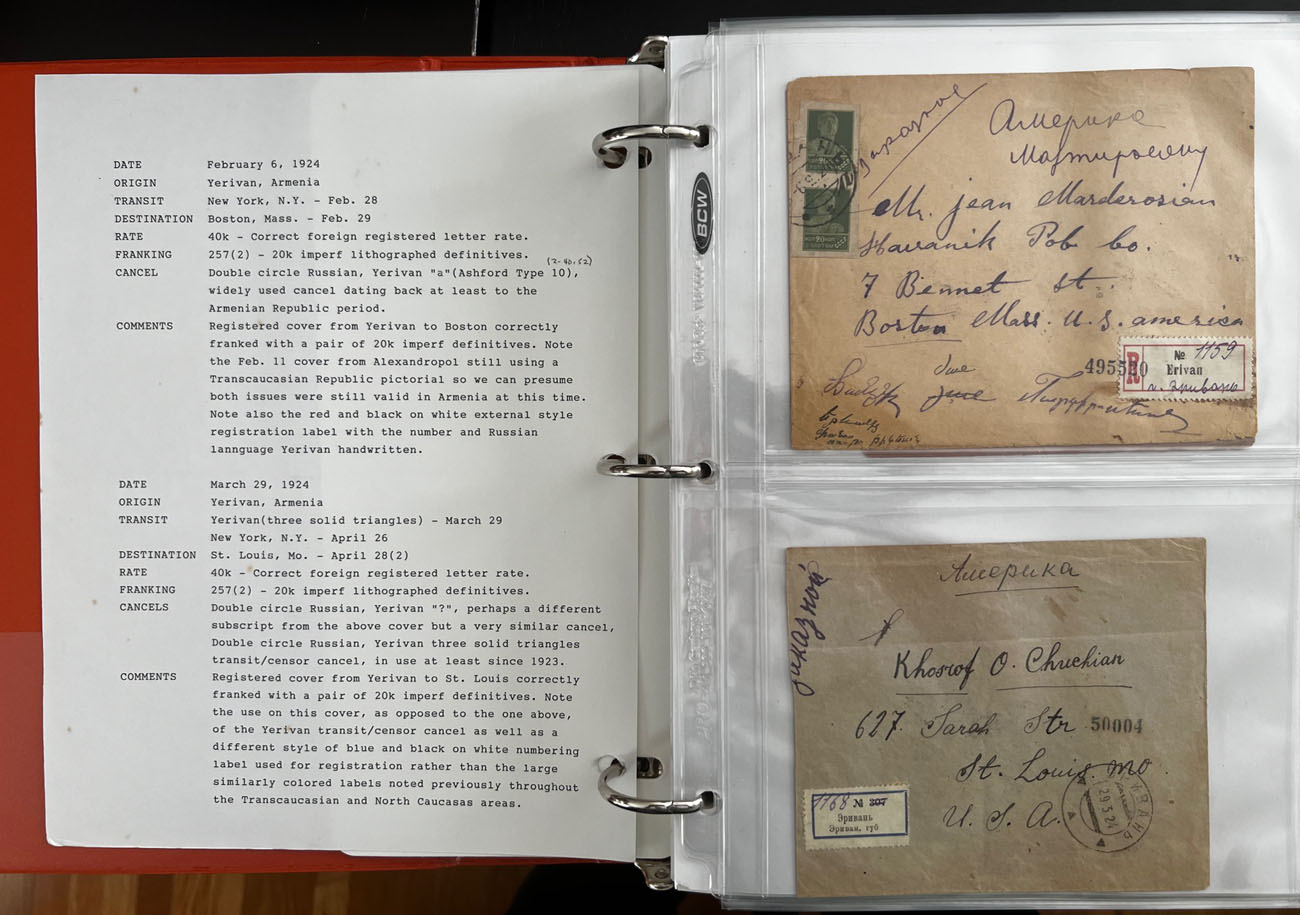 DATE February 6, 1924
ORIGIN Yerivan, Armenia
TRANSIT New York, N.Y. - Feb. 28
DESTINATION Boston, Mass. - Feb. 29
RATE 40k - Correct foreign registered letter rate.
FRANKING 257(2) - 20k imperf lithographed definitives.
(2-40,52)
CANCEL Double circle Russian, Yerivan "a"(Ashford Type 10),
widely used cancel dating back at least to the
Armenian Republic period.
COMMENTS Registered cover from Yerivan to Boston correctly
franked with a pair of 20k imperf definitives. Note
the Feb. 11 cover from Alexandropol still using a
Transcaucasian Republic pictorial so we can presume
both issues were still valid in Armenia at this time.
Note also the red and black on white external style
registration label with the number and Russian
lannguage Yerivan handwritten.
DATE March 29, 1924
ORIGIN Yerivan, Armenia
TRANSIT Yerivan(three solid triangles) - March 29
New York, N.Y. - April 26
DESTINATION St. Louis, Mo. - April 28(2)
RATE 40k - Correct foreign registered letter rate.
FRANKING 257(2) - 20k imperf lithographed definitives.
CANCELS Double circle Russian, Yerivan "?", perhaps a different
subscript from the above cover but a very similar cancel,
Double circle Russian, Yerivan three solid triangles
transit/censor cancel, in use at least since 1923.
COMMENTS Registered cover from Yerivan to St. Louis correctly
franked with a pair of 20k imperf definitives. Note
the use on this cover, as opposed to the one above,
of the Yerivan transit/censor cancel as well as a
different style of blue and black on white numbering
label used for registration rather than the large
similarly colored labels noted previously throughout
the Transcaucasian and North Caucasas areas.
BCW
Америка
Мартиросяну
Mr. jean Marderosian
Havanik Pob bo.
7 Bennet st.
Boston Mass. U.S. america
495520
R № 1159
Erivan
г. Эривань
заказной
Америка
Khosrof O. Chuchian
627 Sarah Str 50004
St. Louis Mo
U. S. A.
1168 № 307
Эривань
Эриван. губ
29.3.24